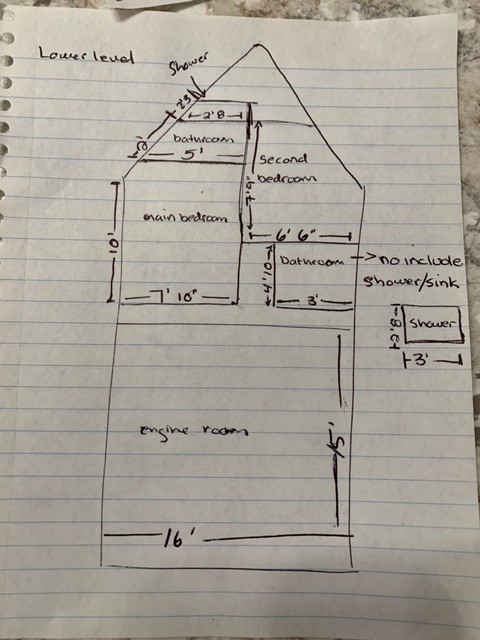 Lower level
Shower
2'3
2'8
2'
bathroom
5'
second
bedroom
7'9"
main bedroom
10'
6' 6"
bathroom
no include
shower/sink
4'10
3'
7' 10"
Shower
2'8
3'
engine room
15'
16'